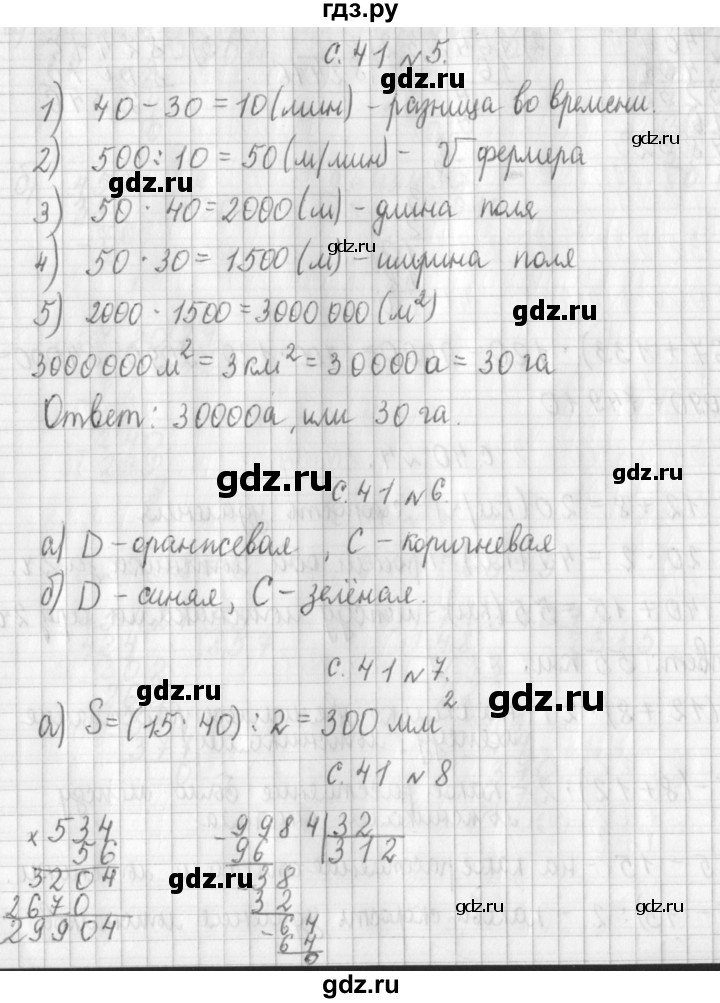 гдз.ру
с. 41 №5.
1) 40 - 30 = 10 (мин) - разница во времени.
2) 500 : 10 = 50 (м/мин) - V фермера
3) 50 · 40 = 2000 (м) - длина поля
4) 50 · 30 = 1500 (м) - ширина поля
5) 2000 · 1500 = 3000 000 (м²)
3000000 м² = 3 км² = 30000 а = 30 га
Ответ: 30000а, или 30 га.
с. 41 №6.
а) D - оранжевая, С - коричневая
б) D - синяя, С - зелёная.
с. 41 №7.
а) S = (15 · 40) : 2 = 300 мм²
с. 41 №8
× 534
56
3204
2670
29904
- 9984 | 32
96 | 312
- 38
32
- 64
64
0
gdz.ru
gdz.ru
gdz.ru
gdz.ru
gdz.ru
gdz.ru
gdz.ru
gdz.ru
gdz.ru
gdz.ru
gdz.ru
gdz.ru